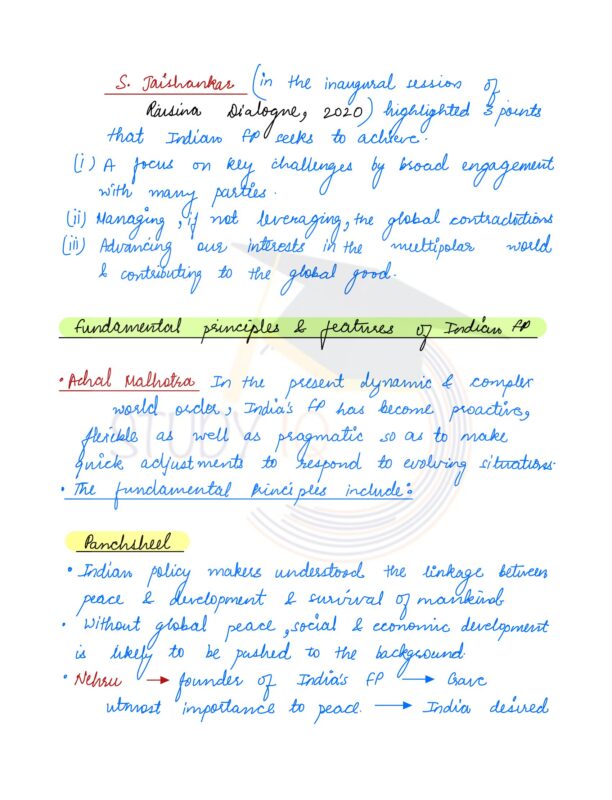 S. Jaishankar (in the inaugural session of
Raisina Dialogue, 2020) highlighted 3 points
that Indian FP seeks to achieve.
(i) A focus on key challenges by broad engagement
with many parties.
(ii) Managing, if not leveraging, the global contradictions
(iii) Advancing our interests in the multipolar world
& contributing to the global good.
Fundamental principles & features of Indian FP
• Achal Malhotra In the present dynamic & complex
world order, India's FP has become proactive,
flexible as well as pragmatic so as to make
quick adjustments to respond to evolving situations.
• The fundamental Principles include:
STUDY IQ
Panchsheel
• Indian policy makers understood the linkage between
peace & development & survival of mankind.
• Without global peace, social & economic development
is likely to be pushed to the background.
• Nehru → founder of India's FP → Gave
utmost importance to peace. → India desired